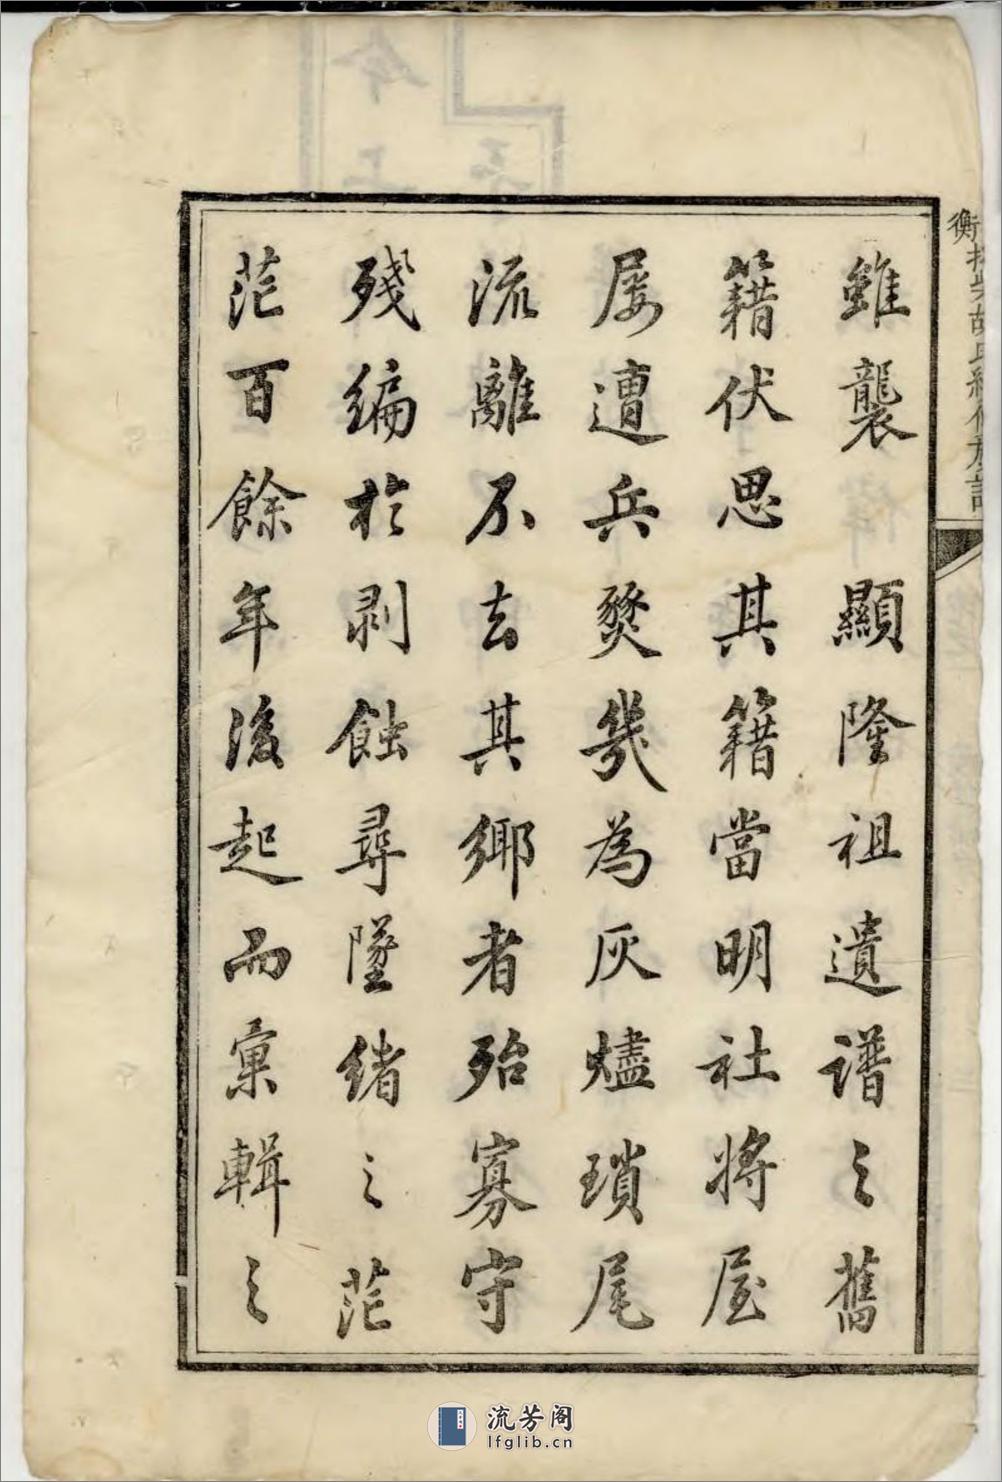 雖襲 顯隆祖遺譜之舊
籍伏思其籍當明社將屋
屡遭兵燹幾為灰燼瑣尾
流離不去其鄉者殆寡守
殘編於剥蝕尋墜緒之茫
茫百餘年後起而彙輯之
衡 胡氏 族譜
流芳阁
lfglib.cn